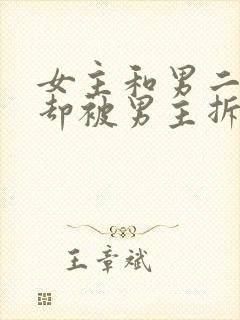 女主和男二
却被男主拆
王章斌